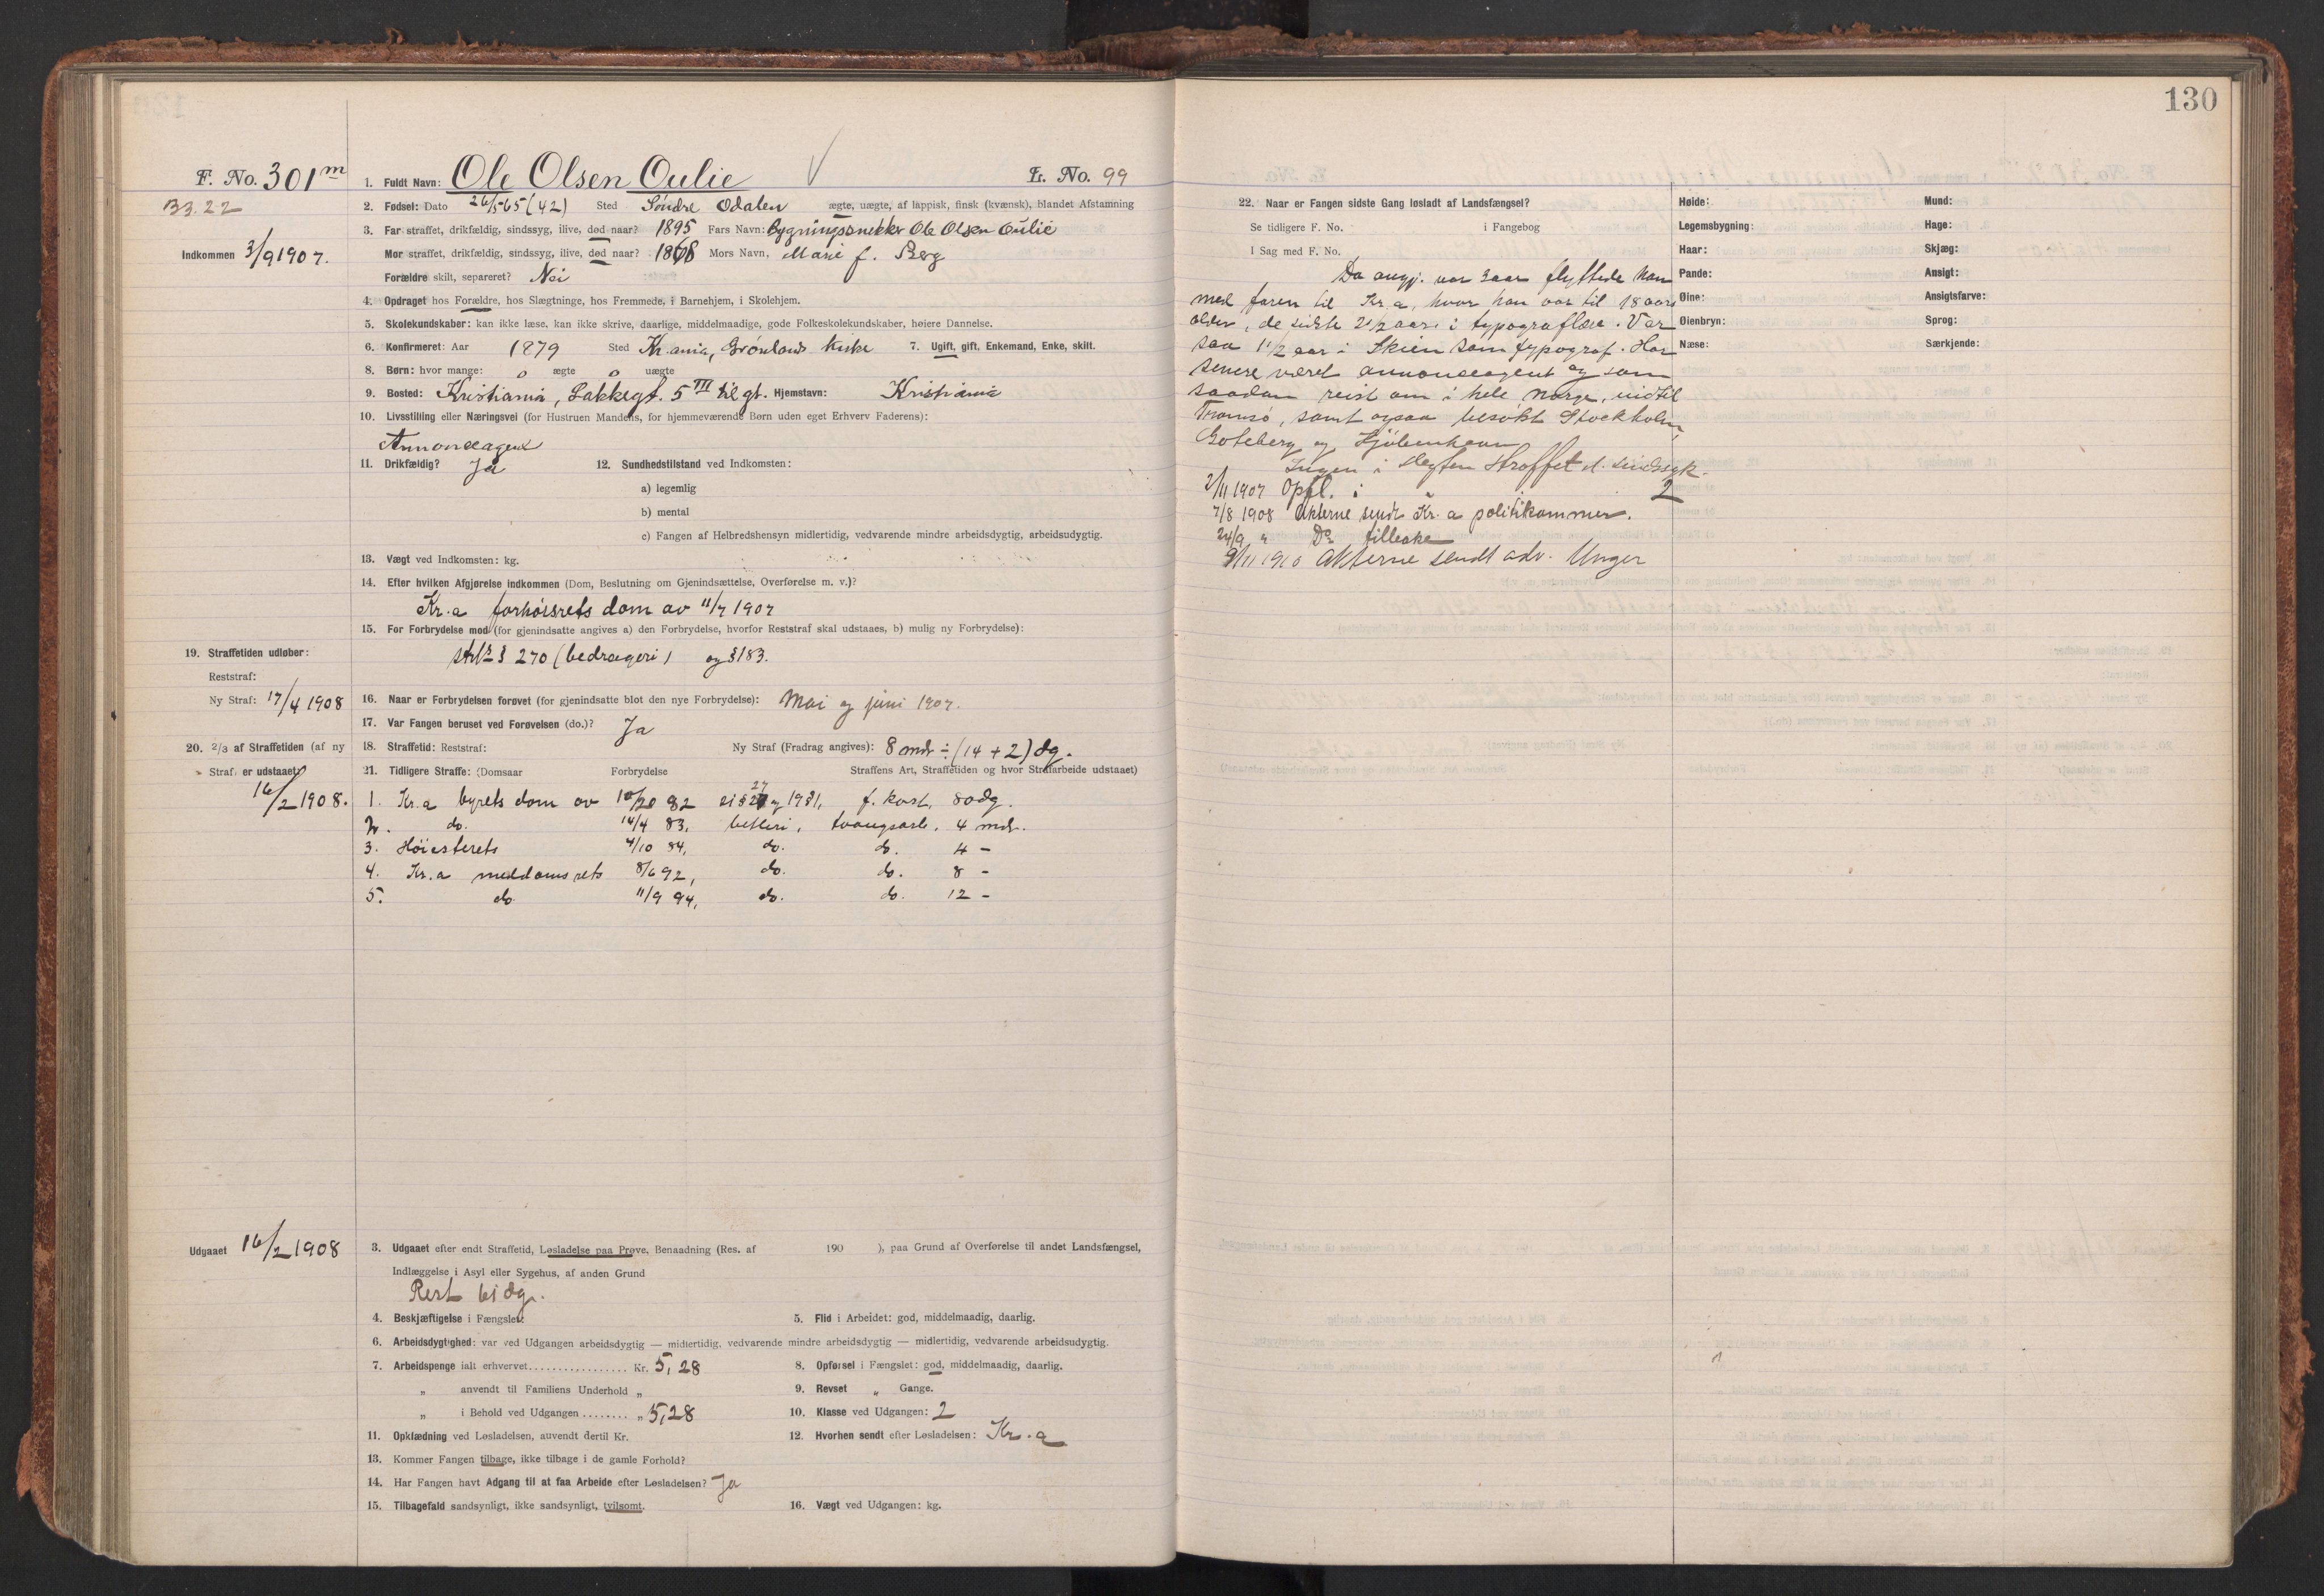 130
F. No. 301 m
1. Fuldt Navn: Ole Olsen Oulie
L. No. 99
B3.22
2. Fødsel: Dato 26/5 65 (42) Sted Søndre Odalen ægte, uægte, af lappisk, finsk (kvænsk), blandet Afstamning
Indkommen 3/9 1907.
3. Far straffet, drikfældig, sindssyg, ilive, død naar? 1895 Fars Navn: Bygningssnekker Ole Olsen Oulie
Mor straffet, drikfældig, sindssyg, ilive, død naar? 1868 Mors Navn, Marie f. Berg
Forældre skilt, separeret? Nei
4. Opdraget hos Forældre, hos Slægtninge, hos Fremmede, i Barnehjem, i Skolehjem.
5. Skolekundskaber: kan ikke læse, kan ikke skrive, daarlige, middelmaadige, gode Folkeskolekundskaber, høiere Dannelse.
6. Konfirmeret: Aar 1879 Sted Kr.ania, Grønlands kirke 7. Ugift, gift, Enkemand, Enke, skilt.
8. Børn: hvor mange: 0 ægte 0 uægte
9. Bosted: Kristiania, Lakkegt. 5 III til gt. Hjemstavn: Kristiania
10. Livsstilling eller Næringsvei (for Hustruen Mandens, for hjemmeværende Børn uden eget Erhverv Faderens):
Annonceagent
11. Drikfældig? Ja 12. Sundhedstilstand ved Indkomsten:
a) legemlig
b) mental
c) Fangen af Helbredshensyn midlertidig, vedvarende mindre arbeidsdygtig, arbeidsudygtig.
13. Vægt ved Indkomsten: kg.
14. Efter hvilken Afgjørelse indkommen (Dom, Beslutning om Gjenindsættelse, Overførelse m. v.)?
Kr.a forhørsrets dom av 11/7 1907
15. For Forbrydelse mod (for gjenindsatte angives a) den Forbrydelse, hvorfor Reststraf skal udstaaes, b) mulig ny Forbrydelse):
19. Straffetiden udløber:
§ 270 (bedrageri) og § 183.
Reststraf:
Ny Straf: 17/4 1908
16. Naar er Forbrydelsen forøvet (for gjenindsatte blot den nye Forbrydelse): Mai og juni 1907.
17. Var Fangen beruset ved Forøvelsen (do.)? Ja
20. 2/3 af Straffetiden (af ny
Straf) er udstaaet:
16/2 1908.
18. Straffetid: Reststraf: Ny Straf (Fradrag angives): 8 mdr ÷ (14 + 2) dg.
21. Tidligere Straffe: (Domsaar Forbrydelse Straffens Art, Straffetiden og hvor Strafarbeide udstaaet)
1. Kr.a byrets dom av 82 f. kost, 80 dg.
2. do. 14/4 83, betleri, tvangsarb. 4 mdr.
3. Høiesterets 4/10 84, do. do. 4 -
4. Kr.a meddomsrets 8/6 92, do. do. 8 -
5. do 11/9 94, do. do. 12 -
Udgaaet 16/2 1908
3. Udgaaet efter endt Straffetid, Løsladelse paa Prøve, Benaadning (Res. af 190 ), paa Grund af Overførelse til andet Landsfængsel,
Indlæggelse i Asyl eller Sygehus, af anden Grund
Rest 61 dg.
4. Beskjæftigelse i Fængslet: 5. Flid i Arbeidet: god, middelmaadig, daarlig.
6. Arbeidsdygtighed: var ved Udgangen arbeidsdygtig — midlertidig, vedvarende mindre arbeidsdygtig — midlertidig, vedvarende arbeidsudygtig.
7. Arbeidspenge ialt erhvervet ................. Kr. 5,28 8. Opførsel i Fængslet: god, middelmaadig, daarlig.
„ anvendt til Familiens Underhold „ 9. Revset „ Gange.
„ i Behold ved Udgangen ........ „ 5,28 10. Klasse ved Udgangen: 2
11. Opklædning ved Løsladelsen, anvendt dertil Kr. 12. Hvorhen sendt efter Løsladelsen: Kr.a
13. Kommer Fangen tilbage, ikke tilbage i de gamle Forhold?
14. Har Fangen havt Adgang til at faa Arbeide efter Løsladelsen? Ja
15. Tilbagefald sandsynligt, ikke sandsynligt, tvilsomt. 16. Vægt ved Udgangen: kg.
22. Naar er Fangen sidste Gang løsladt af Landsfængsel?
Se tidligere F. No. i Fangebog
I Sag med F. No.
Da angj. var 3 aar flyttede han
med faren til Kr.a, hvor han var til 18 aars
alder, de sidste 2 1/2 aar i typograflære. Var
saa 1 1/2 aar i Skien som typograf. Har
senere været annonceagent og som
saadan reist om i hele Norge, indtil
Tromsø, samt ogsaa besøkt Stockholm,
Goteberg og Kjøbenhavn
Ingen i slegten straffet el. sindssyk.
2/11 1907 Opfl. i 2
7/8 1908 Akterne sendt Kr.a politikammer.
24/9 " Do tilbake
9/11 1910 Akterne sendt adv. Unger
Høide: Mund:
Legemsbygning: Hage:
Haar: Skjæg:
Pande: Ansigt:
Øine: Ansigtsfarve:
Øienbryn: Sprog:
Næse: Særkjende: